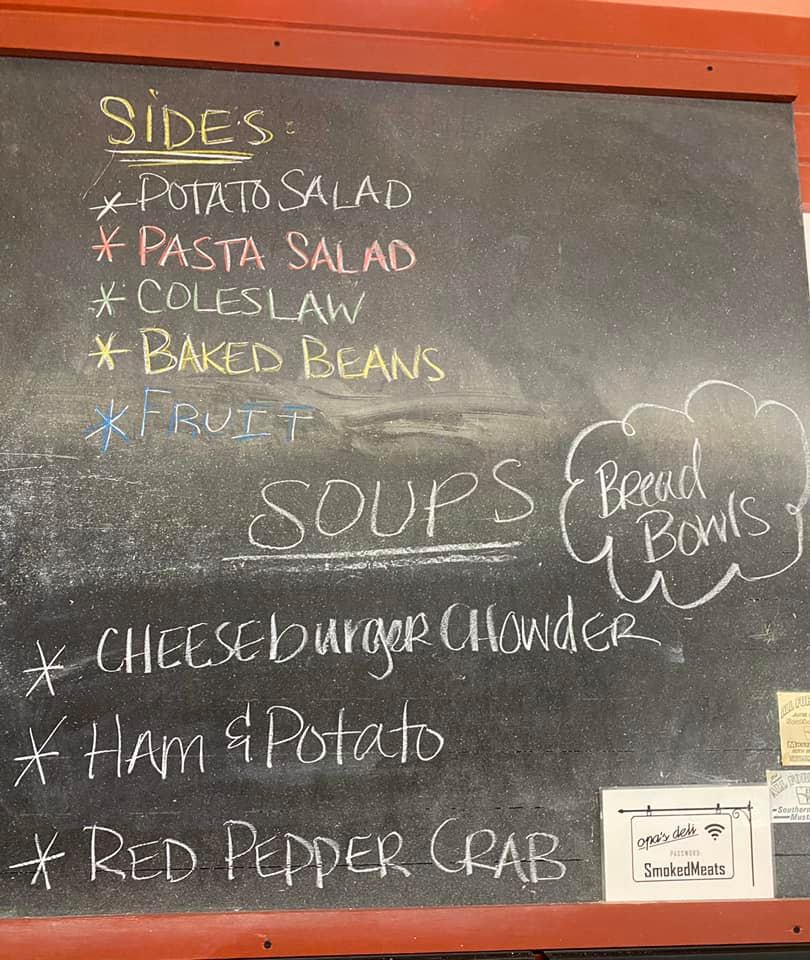 SIDES:
* POTATO SALAD
* PASTA SALAD
* COLESLAW
* BAKED BEANS
* FRUIT
SOUPS
Bread
Bowls
* CHEESEburgER CHowdER
* HAM & Potato
* RED PEPPER CRAB
opa's deli
PASSWORD:
SmokedMeats
Southern
Must